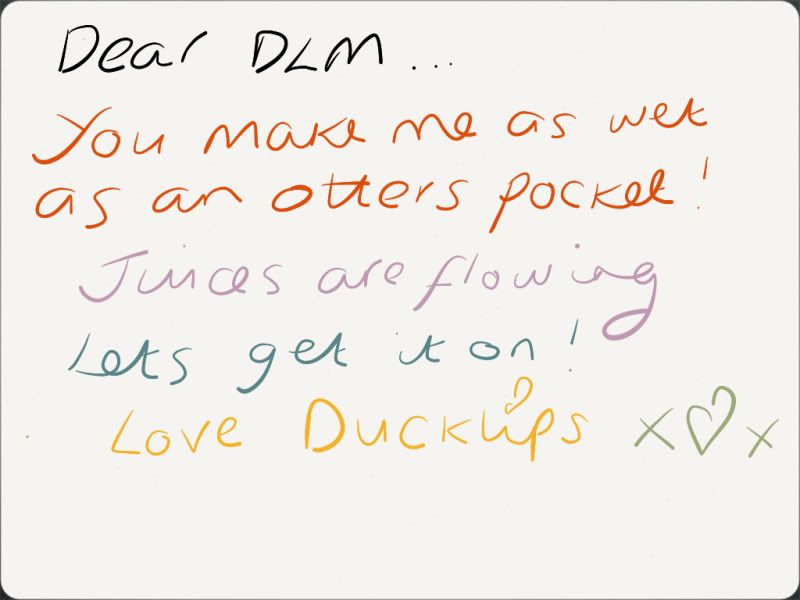 Dear DLM...
You make me as wet
as an otters pocket!
Juices are flowing
Lets get it on!
Love Ducklips x♡x